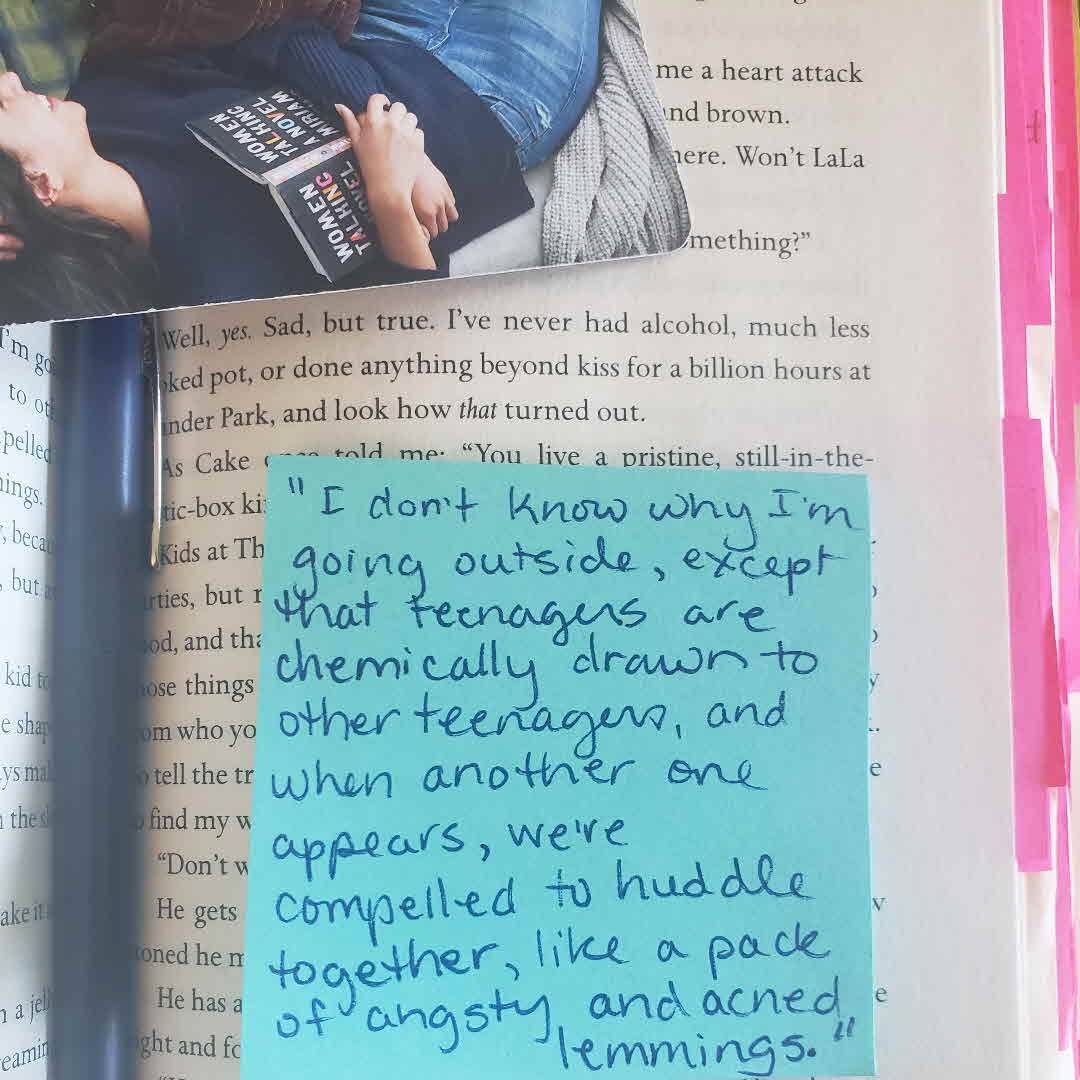 me a heart attack
nd brown.
here. Won't LaLa
mething?"
WOMEN
TALKING
A NOVEL
MIRIAM
WOMEN
TALKING
NOVEL
Well, yes. Sad, but true. I've never had alcohol, much less
ked pot, or done anything beyond kiss for a billion hours at
nder Park, and look how that turned out.
As Cake once told me: "You live a pristine, still-in-the-
tic-box ki
Kids at Th
rties, but r
od, and tha
ose things
om who yo
o tell the tr
o find my w
"Don't w
He gets
oned he m
He has a
ght and fo
"I don't know why I'm
going outside, except
that teenagers are
chemically drawn to
other teenagers, and
when another one
appears, we're
compelled to huddle
together, like a pack
of angsty and acned
lemmings."
I'm go
to ot
pelled
ings.
, becau
, but a
kid to
e shap
ys mal
n the s
ake it
n a jel
eamin